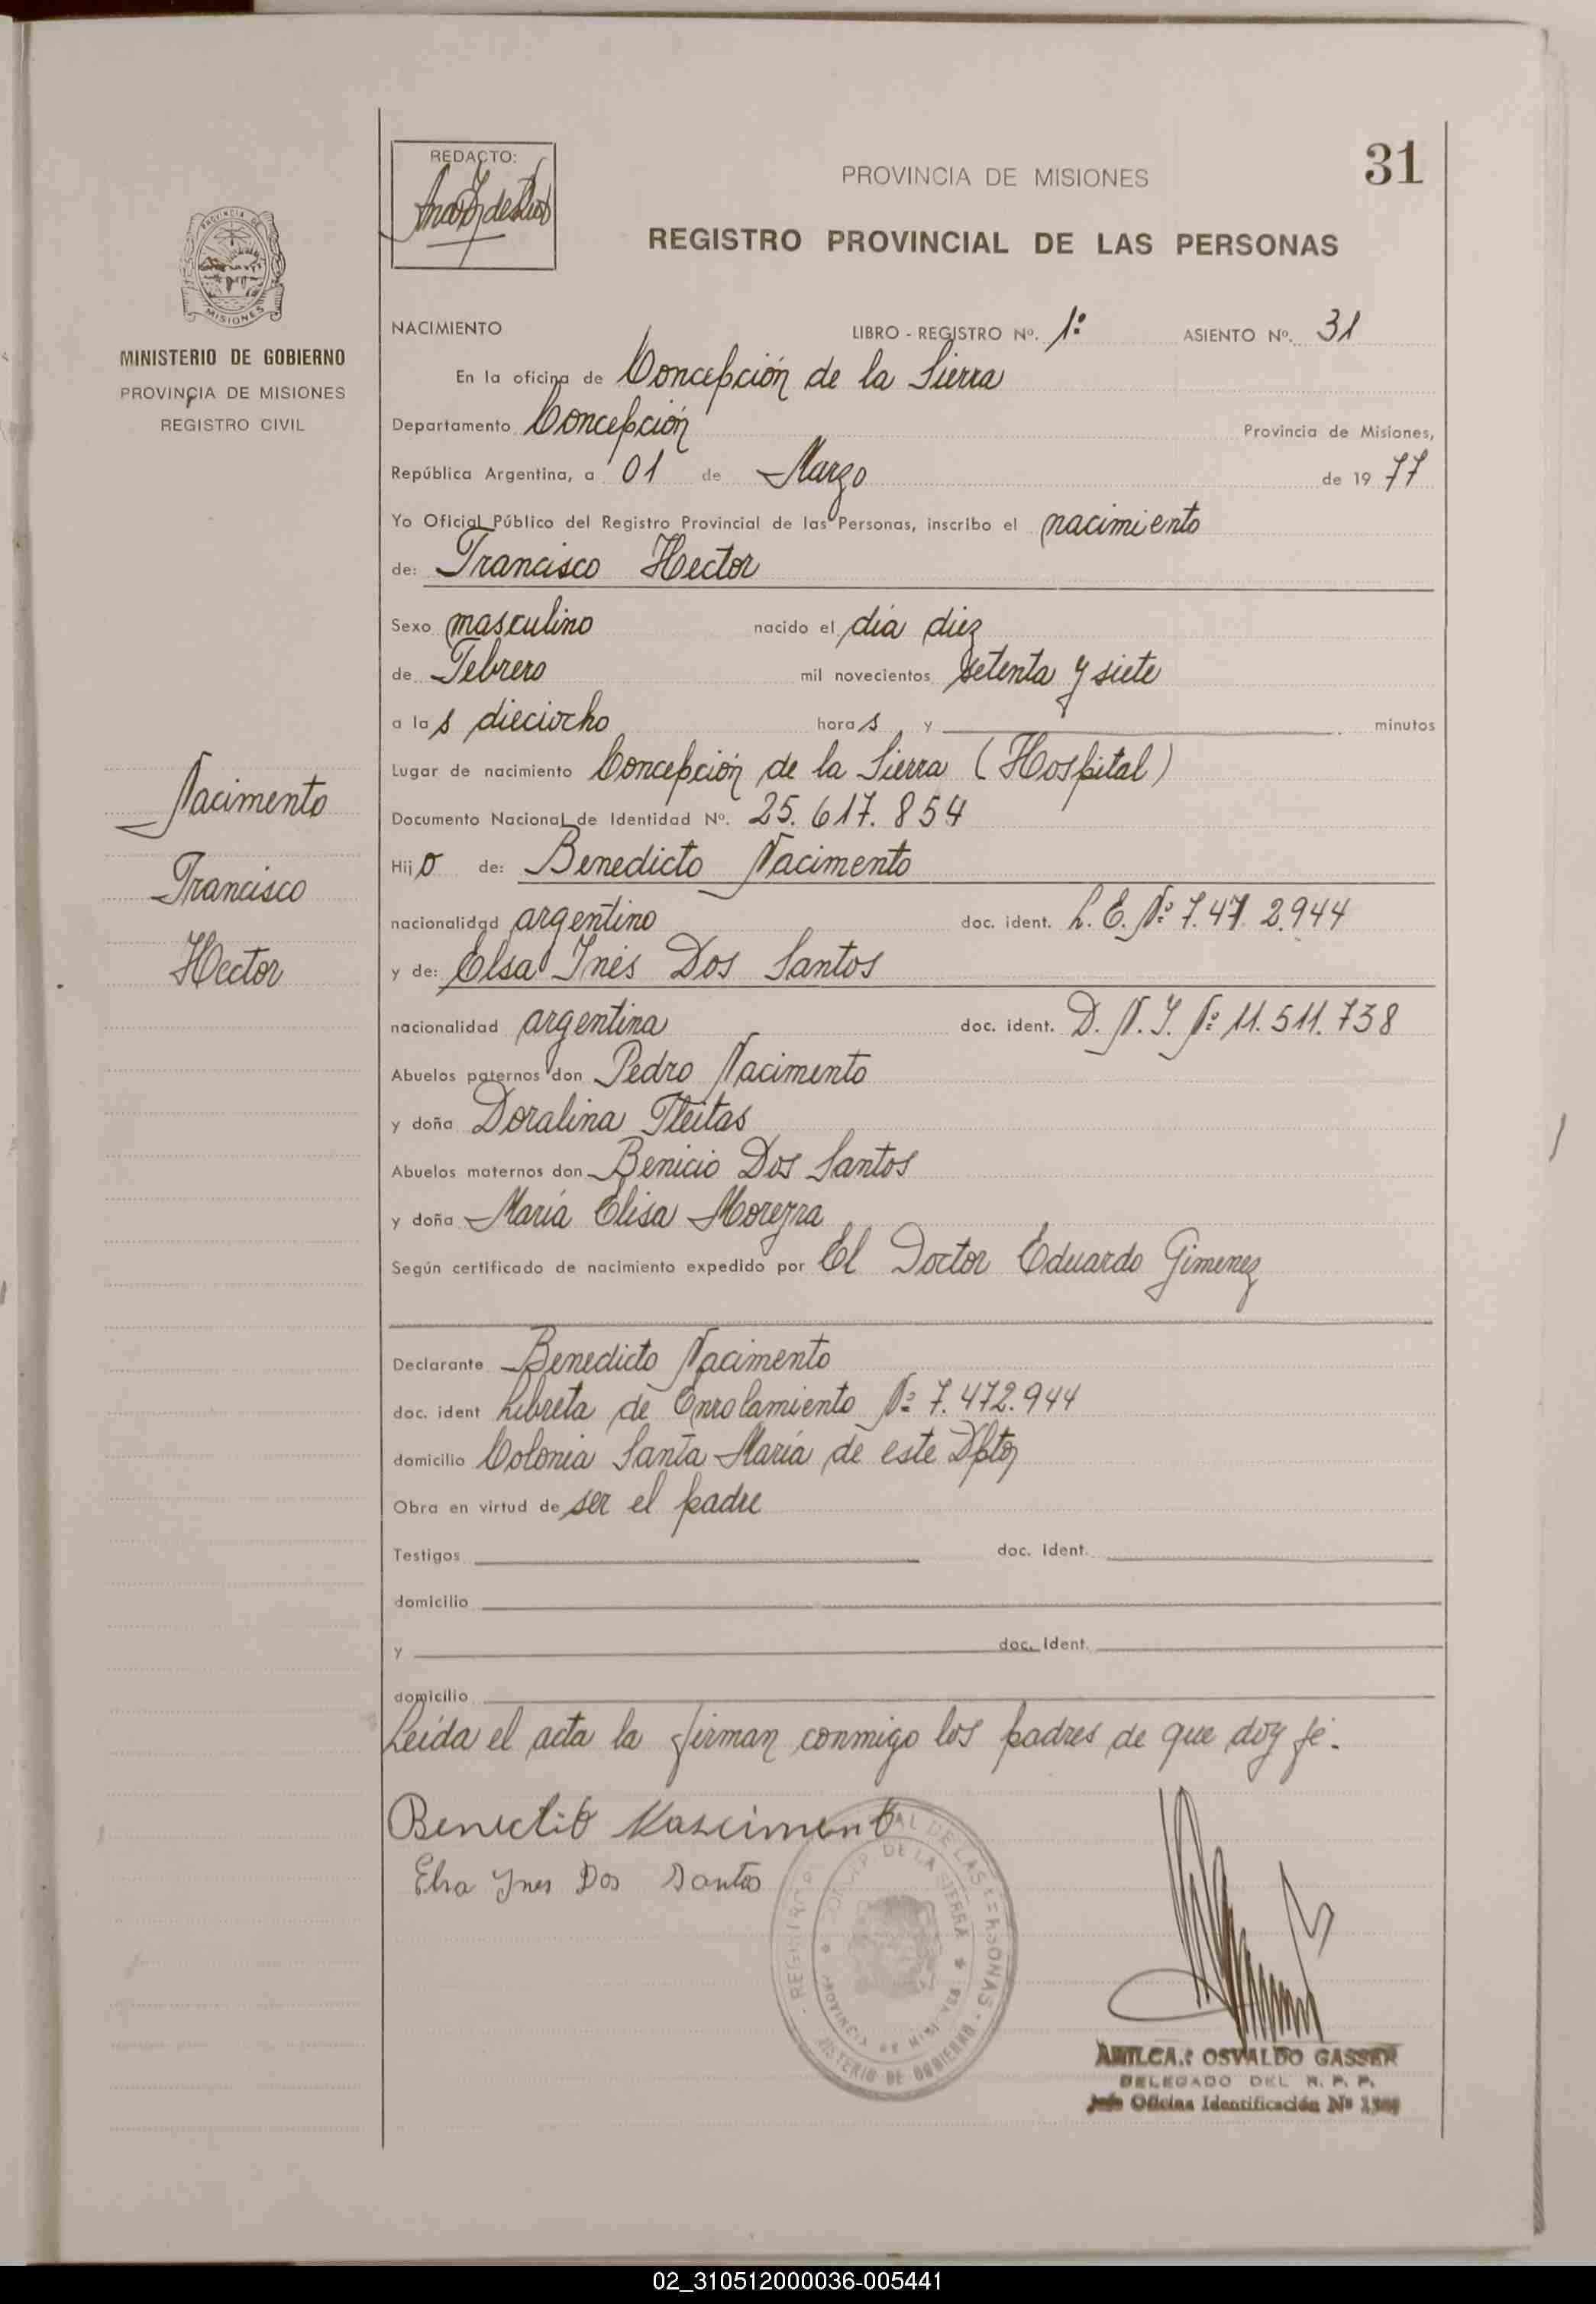 REDACTO:
PROVINCIA DE MISIONES
31
REGISTRO PROVINCIAL DE LAS PERSONAS
MINISTERIO DE GOBIERNO
PROVINCIA DE MISIONES
REGISTRO CIVIL
NACIMIENTO LIBRO - REGISTRO Nº. 1º ASIENTO Nº. 31
En la oficina de Concepción de la Sierra
Departamento Concepción Provincia de Misiones,
República Argentina, a 01 de Marzo de 1977
Yo Oficial Público del Registro Provincial de las Personas, inscribo el nacimiento
de: Francisco Hector
Sexo masculino nacido el día diez
de Febrero mil novecientos setenta y siete
a las dieciocho horas y minutos
Lugar de nacimiento Concepción de la Sierra (Hospital)
Documento Nacional de Identidad Nº. 25.617.854
Hijo de: Benedicto Nacimento
nacionalidad argentino doc. ident. L.E. Nº 7.472.944
y de: Elsa Inés Dos Santos
nacionalidad argentina doc. ident. D.N.I. Nº 11.511.738
Abuelos paternos don Pedro Nacimento
y doña Doralina Fleitas
Abuelos maternos don Benicio Dos Santos
y doña María Elisa Moreyra
Según certificado de nacimiento expedido por El Doctor Eduardo Gimenez
Nacimento
Francisco
Hector
Declarante Benedicto Nacimento
doc. ident Libreta de Enrolamiento Nº 7.472.944
domicilio Colonia Santa María de este Dpto
Obra en virtud de ser el padre
Testigos doc. ident.
domicilio
y doc. ident.
domicilio
Leída el acta la firman conmigo los padres de que doy fé.
Benedicto Nascimento
Elsa Ynes Dos Santos
DE LA SIERRA
PROVINCIA DE MISIONES
OSVALDO GASSER
DELEGADO DEL R. P. P.
Jefe Oficina Identificación Nº
02_310512000036-005441